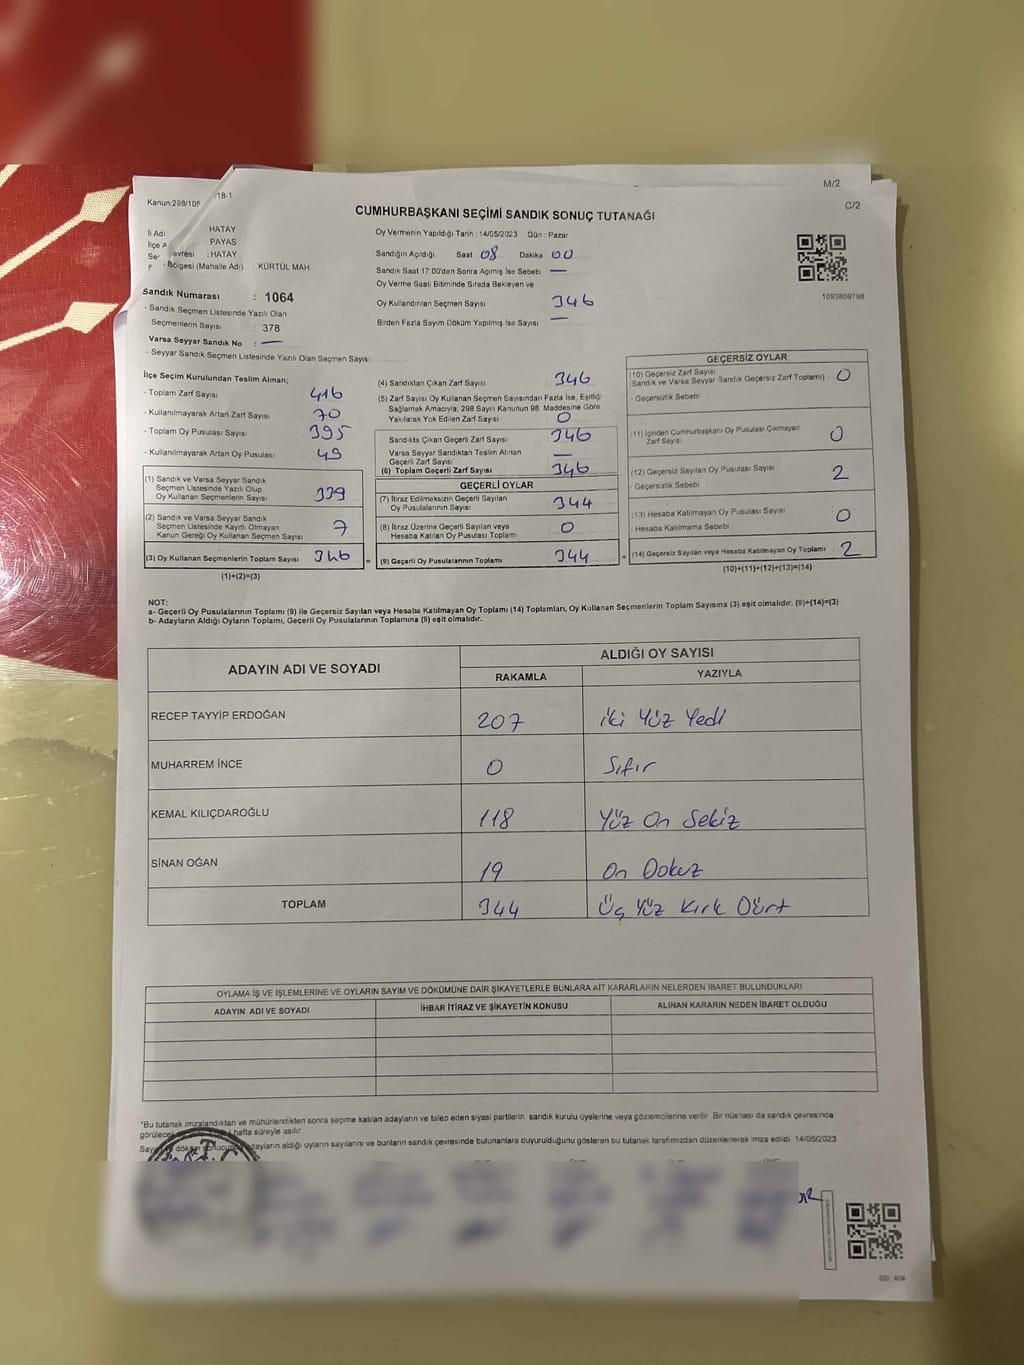 M/2
Kanun:298/105
18-1
C/2
CUMHURBAŞKANI SEÇİMİ SANDIK SONUÇ TUTANAĞI
İli Adı HATAY
İlçe A PAYAS
Se evresi : HATAY
Bölgesi (Mahalle Adı) KÜRTÜL MAH.
Sandık Numarası : 1064
- Sandık Seçmen Listesinde Yazılı Olan
Seçmenlerin Sayısı : 378
Varsa Seyyar Sandık No : —
- Seyyar Sandık Seçmen Listesinde Yazılı Olan Seçmen Sayısı:
Oy Vermenin Yapıldığı Tarih : 14/05/2023 Gün : Pazar
Sandığın Açıldığı Saat 08 Dakika 00
Sandık Saat 17:00'den Sonra Açımış İse Sebebi —
Oy Verme Saati Bitiminde Sırada Bekleyen ve
Oy Kullandırılan Seçmen Sayısı 346
Birden Fazla Sayım Döküm Yapılmış İse Sayısı —
1093809798
İlçe Seçim Kurulundan Teslim Alınan;
- Toplam Zarf Sayısı 416
- Kullanılmayarak Artan Zarf Sayısı 70
- Toplam Oy Pusulası Sayısı 395
- Kullanılmayarak Artan Oy Pusulası 49
(1) Sandık ve Varsa Seyyar Sandık
Seçmen Listesinde Yazılı Olup
Oy Kullanan Seçmenlerin Sayısı 339
(2) Sandık ve Varsa Seyyar Sandık
Seçmen Listesinde Kayıtlı Olmayan
Kanun Gereği Oy Kullanan Seçmen Sayısı 7
(3) Oy Kullanan Seçmenlerin Toplam Sayısı 346
(1)+(2)=(3)
(4) Sandıktan Çıkan Zarf Sayısı 346
(5) Zarf Sayısı Oy Kullanan Seçmen Sayısından Fazla İse, Eşitliği
Sağlamak Amacıyla; 298 Sayılı Kanunun 98. Maddesine Göre
Yakılarak Yok Edilen Zarf Sayısı 0
Sandıkta Çıkan Geçerli Zarf Sayısı 346
Varsa Seyyar Sandıktan Teslim Alınan
Geçerli Zarf Sayısı —
(6) Toplam Geçerli Zarf Sayısı 346
GEÇERLİ OYLAR
(7) İtiraz Edilmeksizin Geçerli Sayılan
Oy Pusulalarının Sayısı 344
(8) İtiraz Üzerine Geçerli Sayılan veya
Hesaba Katılan Oy Pusulası Toplamı 0
= (9) Geçerli Oy Pusulalarının Toplamı 344
GEÇERSİZ OYLAR
(10) Geçersiz Zarf Sayısı
(Sandık ve Varsa Seyyar Sandık Geçersiz Zarf Toplamı) 0
- Geçersizlik Sebebi
(11) İçinden Cumhurbaşkanı Oy Pusulası Çıkmayan
Zarf Sayısı 0
(12) Geçersiz Sayılan Oy Pusulası Sayısı 2
- Geçersizlik Sebebi
(13) Hesaba Katılmayan Oy Pusulası Sayısı 0
- Hesaba Katılmama Sebebi
+ (14) Geçersiz Sayılan veya Hesaba Katılmayan Oy Toplamı 2
(10)+(11)+(12)+(13)=(14)
NOT:
a- Geçerli Oy Pusulalarının Toplamı (9) ile Geçersiz Sayılan veya Hesaba Katılmayan Oy Toplamı (14) Toplamları, Oy Kullanan Seçmenlerin Toplam Sayısına (3) eşit olmalıdır. (9)+(14)=(3)
b- Adayların Aldığı Oyların Toplamı, Geçerli Oy Pusulalarının Toplamına (9) eşit olmalıdır.
ADAYIN ADI VE SOYADI
ALDIĞI OY SAYISI
RAKAMLA YAZIYLA
RECEP TAYYİP ERDOĞAN 207 İki Yüz Yedi
MUHARREM İNCE 0 Sıfır
KEMAL KILIÇDAROĞLU 118 Yüz On Sekiz
SİNAN OĞAN 19 On Dokuz
TOPLAM 344 Üç Yüz Kırk Dört
OYLAMA İŞ VE İŞLEMLERİNE VE OYLARIN SAYIM VE DÖKÜMÜNE DAİR ŞİKAYETLERLE BUNLARA AİT KARARLARIN NELERDEN İBARET BULUNDUKLARI
ADAYIN ADI VE SOYADI İHBAR İTİRAZ VE ŞİKAYETİN KONUSU ALINAN KARARIN NEDEN İBARET OLDUĞU
"Bu tutanak imzalandıktan ve mühürlendikten sonra seçime katılan adayların ve talep eden siyasi partilerin sandık kurulu üyelerine veya gözlemcilerine verilir. Bir nüshası da sandık çevresinde
görülecek hafta süreyle asılır.
Sayı döküm sonucu adayların aldığı oyların sayılarını ve bunların sandık çevresinde bulunanlara duyurulduğunu gösteren bu tutanak tarafımızdan düzenlenerek imza edildi. 14/05/2023